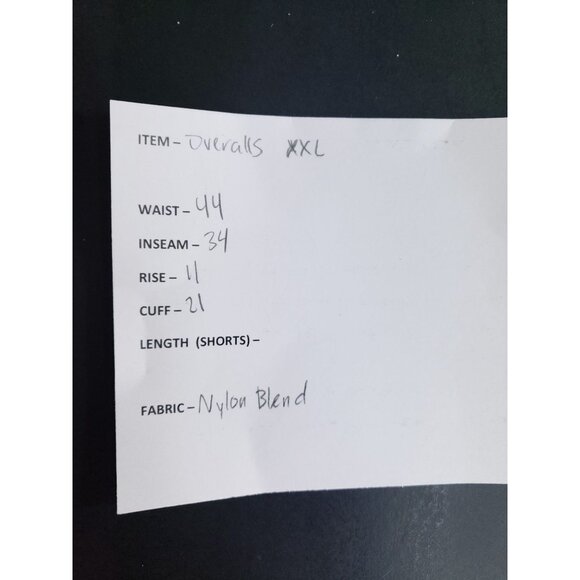 ITEM – Overalls XXL
WAIST – 44
INSEAM – 34
RISE – 11
CUFF – 21
LENGTH (SHORTS) –
FABRIC – Nylon Blend